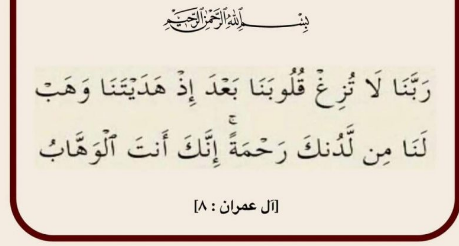 بِسْمِ ٱللَّهِ ٱلرَّحْمَٰنِ ٱلرَّحِيمِ
رَبَّنَا لَا تُزِغْ قُلُوبَنَا بَعْدَ إِذْ هَدَيْتَنَا وَهَبْ
لَنَا مِن لَّدُنكَ رَحْمَةً ۚ إِنَّكَ أَنتَ ٱلْوَهَّابُ
[آل عمران : ٨]